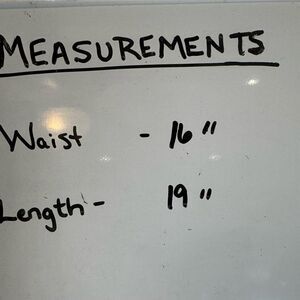 MEASUREMENTS
Waist - 16"
Length - 19"